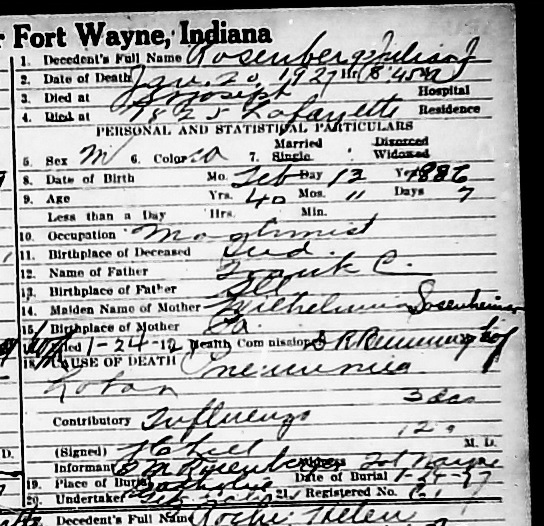 r Fort Wayne, Indiana
1. Decedent's Full Name Rosenberger Julian J
2. Date of Death Jan. 20, 1927 Hr. 8:45
3. Died at St Joseph Hospital
4. Died at 1825 Lafayette Residence
PERSONAL AND STATISTICAL PARTICULARS
5. Sex M 6. Color W 7. Married Single Divorced Widowed
8. Date of Birth Mo. Feb Day 13 Yr 1886
9. Age Yrs. 40 Mos. 11 Days 7
Less than a Day Hrs. Min.
10. Occupation Machinist
11. Birthplace of Deceased Ind.
12. Name of Father Frank C.
13. Birthplace of Father
14. Maiden Name of Mother Wilhelmina Sosenheimer
15. Birthplace of Mother
Filed 1-24- Health Commissioner
18. CAUSE OF DEATH Pneumonia
Lobar
3 das
Contributory Influenza
12
(Signed) M. D.
Informant Rosenberger Address Fort Wayne
19. Place of Burial Catholic Date of Burial 1-24-27
20. Undertaker 21. Registered No. 61
Decedent's Full Name Roche Helen